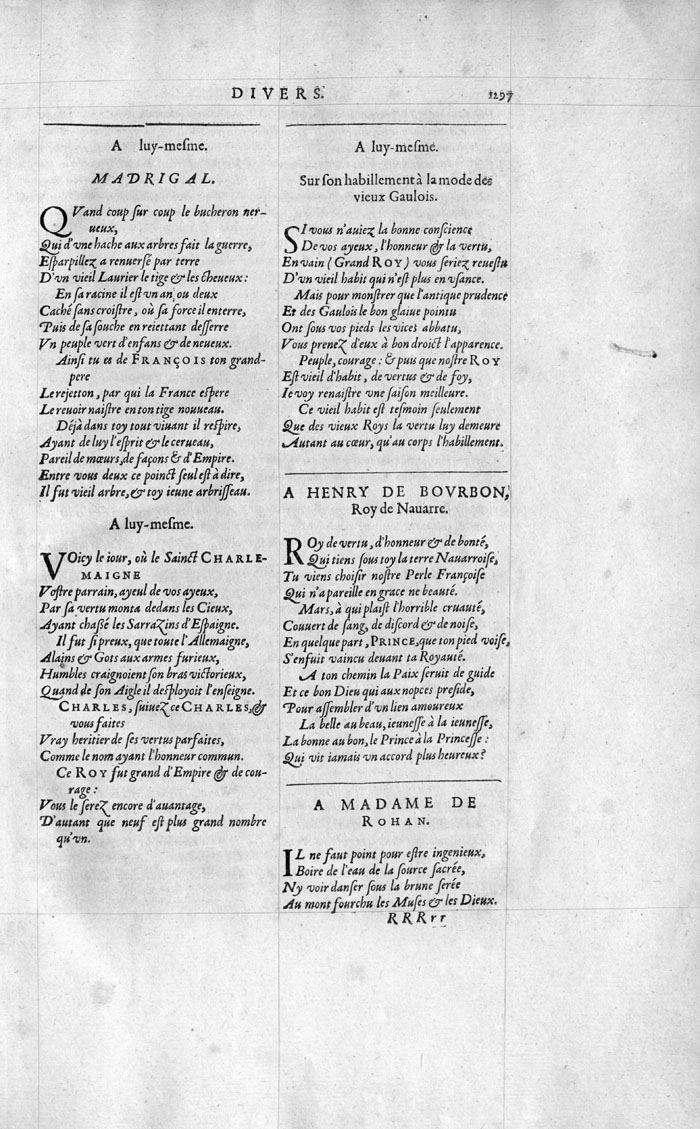 DIVERS. 1297
A luy-meſme.
MADRIGAL.
QVand coup ſur coup le bucheron ner-
ueux,
Qui d'vne hache aux arbres fait la guerre,
Eſparpillez a renuerſé par terre
D'vn vieil Laurier le tige & les cheueux:
En ſa racine il eſt vn an, ou deux
Caché ſans croiſtre, où ſa force il enterre,
Puis de ſa ſouche en reiettant deſſerre
Vn peuple vert d'enfans & de neueux.
Ainſi tu es de FRANÇOIS ton grand-
pere
Le rejetton, par qui la France eſpere
Le reuoir naiſtre en ton tige nouueau.
Déjà dans toy tout viuant il reſpire,
Ayant de luy l'eſprit & le cerueau,
Pareil de mœurs, de façons & d'Empire.
Entre vous deux ce poinct ſeul eſt à dire,
Il fut vieil arbre, & toy ieune arbriſſeau.
A luy-meſme.
VOicy le iour, où le Sainct CHARLE-
MAIGNE
Voſtre parrain, ayeul de vos ayeux,
Par ſa vertu monta dedans les Cieux,
Ayant chaſſé les Sarrazins d'Eſpaigne.
Il fut ſi preux, que toute l'Allemaigne,
Alains & Gots aux armes furieux,
Humbles craignoient ſon bras victorieux,
Quand de ſon Aigle il deſployoit l'enſeigne.
CHARLES, ſuiuez ce CHARLES, &
vous faites
Vray heritier de ſes vertus parfaites,
Comme le nom ayant l'honneur commun.
Ce ROY fut grand d'Empire & de cou-
rage:
Vous le ſerez encore d'auantage,
D'autant que neuf eſt plus grand nombre
qu'vn.
A luy-meſme.
Sur ſon habillement à la mode des
vieux Gaulois.
SI vous n'auiez la bonne conſcience
De vos ayeux, l'honneur & la vertu,
En vain (Grand ROY) vous ſeriez reueſtu
D'vn vieil habit qui n'eſt plus en vſance.
Mais pour monſtrer que l'antique prudence
Et des Gaulois le bon glaiue pointu
Ont ſous vos pieds les vices abbatu,
Vous prenez d'eux à bon droict l'apparence.
Peuple, courage: & puis que noſtre ROY
Eſt vieil d'habit, de vertus & de foy,
Ie voy renaiſtre vne ſaiſon meilleure.
Ce vieil habit eſt teſmoin ſeulement
Que des vieux Roys la vertu luy demeure
Autant au cœur, qu'au corps l'habillement.
A HENRY DE BOVRBON,
Roy de Nauarre.
ROy de vertu, d'honneur & de bonté,
Qui tiens ſous toy la terre Nauarroiſe,
Tu viens choiſir noſtre Perle Françoiſe
Qui n'a pareille en grace ne beauté.
Mars, à qui plaiſt l'horrible cruauté,
Couuert de ſang, de diſcord & de noiſe,
En quelque part, PRINCE, que ton pied voiſe,
S'enfuit vaincu deuant ta Royauté.
A ton chemin la Paix ſeruit de guide
Et ce bon Dieu qui aux nopces preſide,
Pour aſſembler d'vn lien amoureux
La belle au beau, ieuneſſe à la ieuneſſe,
La bonne au bon, le Prince à la Princeſſe:
Qui vit iamais vn accord plus heureux?
A MADAME DE
ROHAN.
IL ne faut point pour eſtre ingenieux,
Boire de l'eau de la ſource ſacrée,
Ny voir danſer ſous la brune ſerée
Au mont fourchu les Muſes & les Dieux.
RRRrr